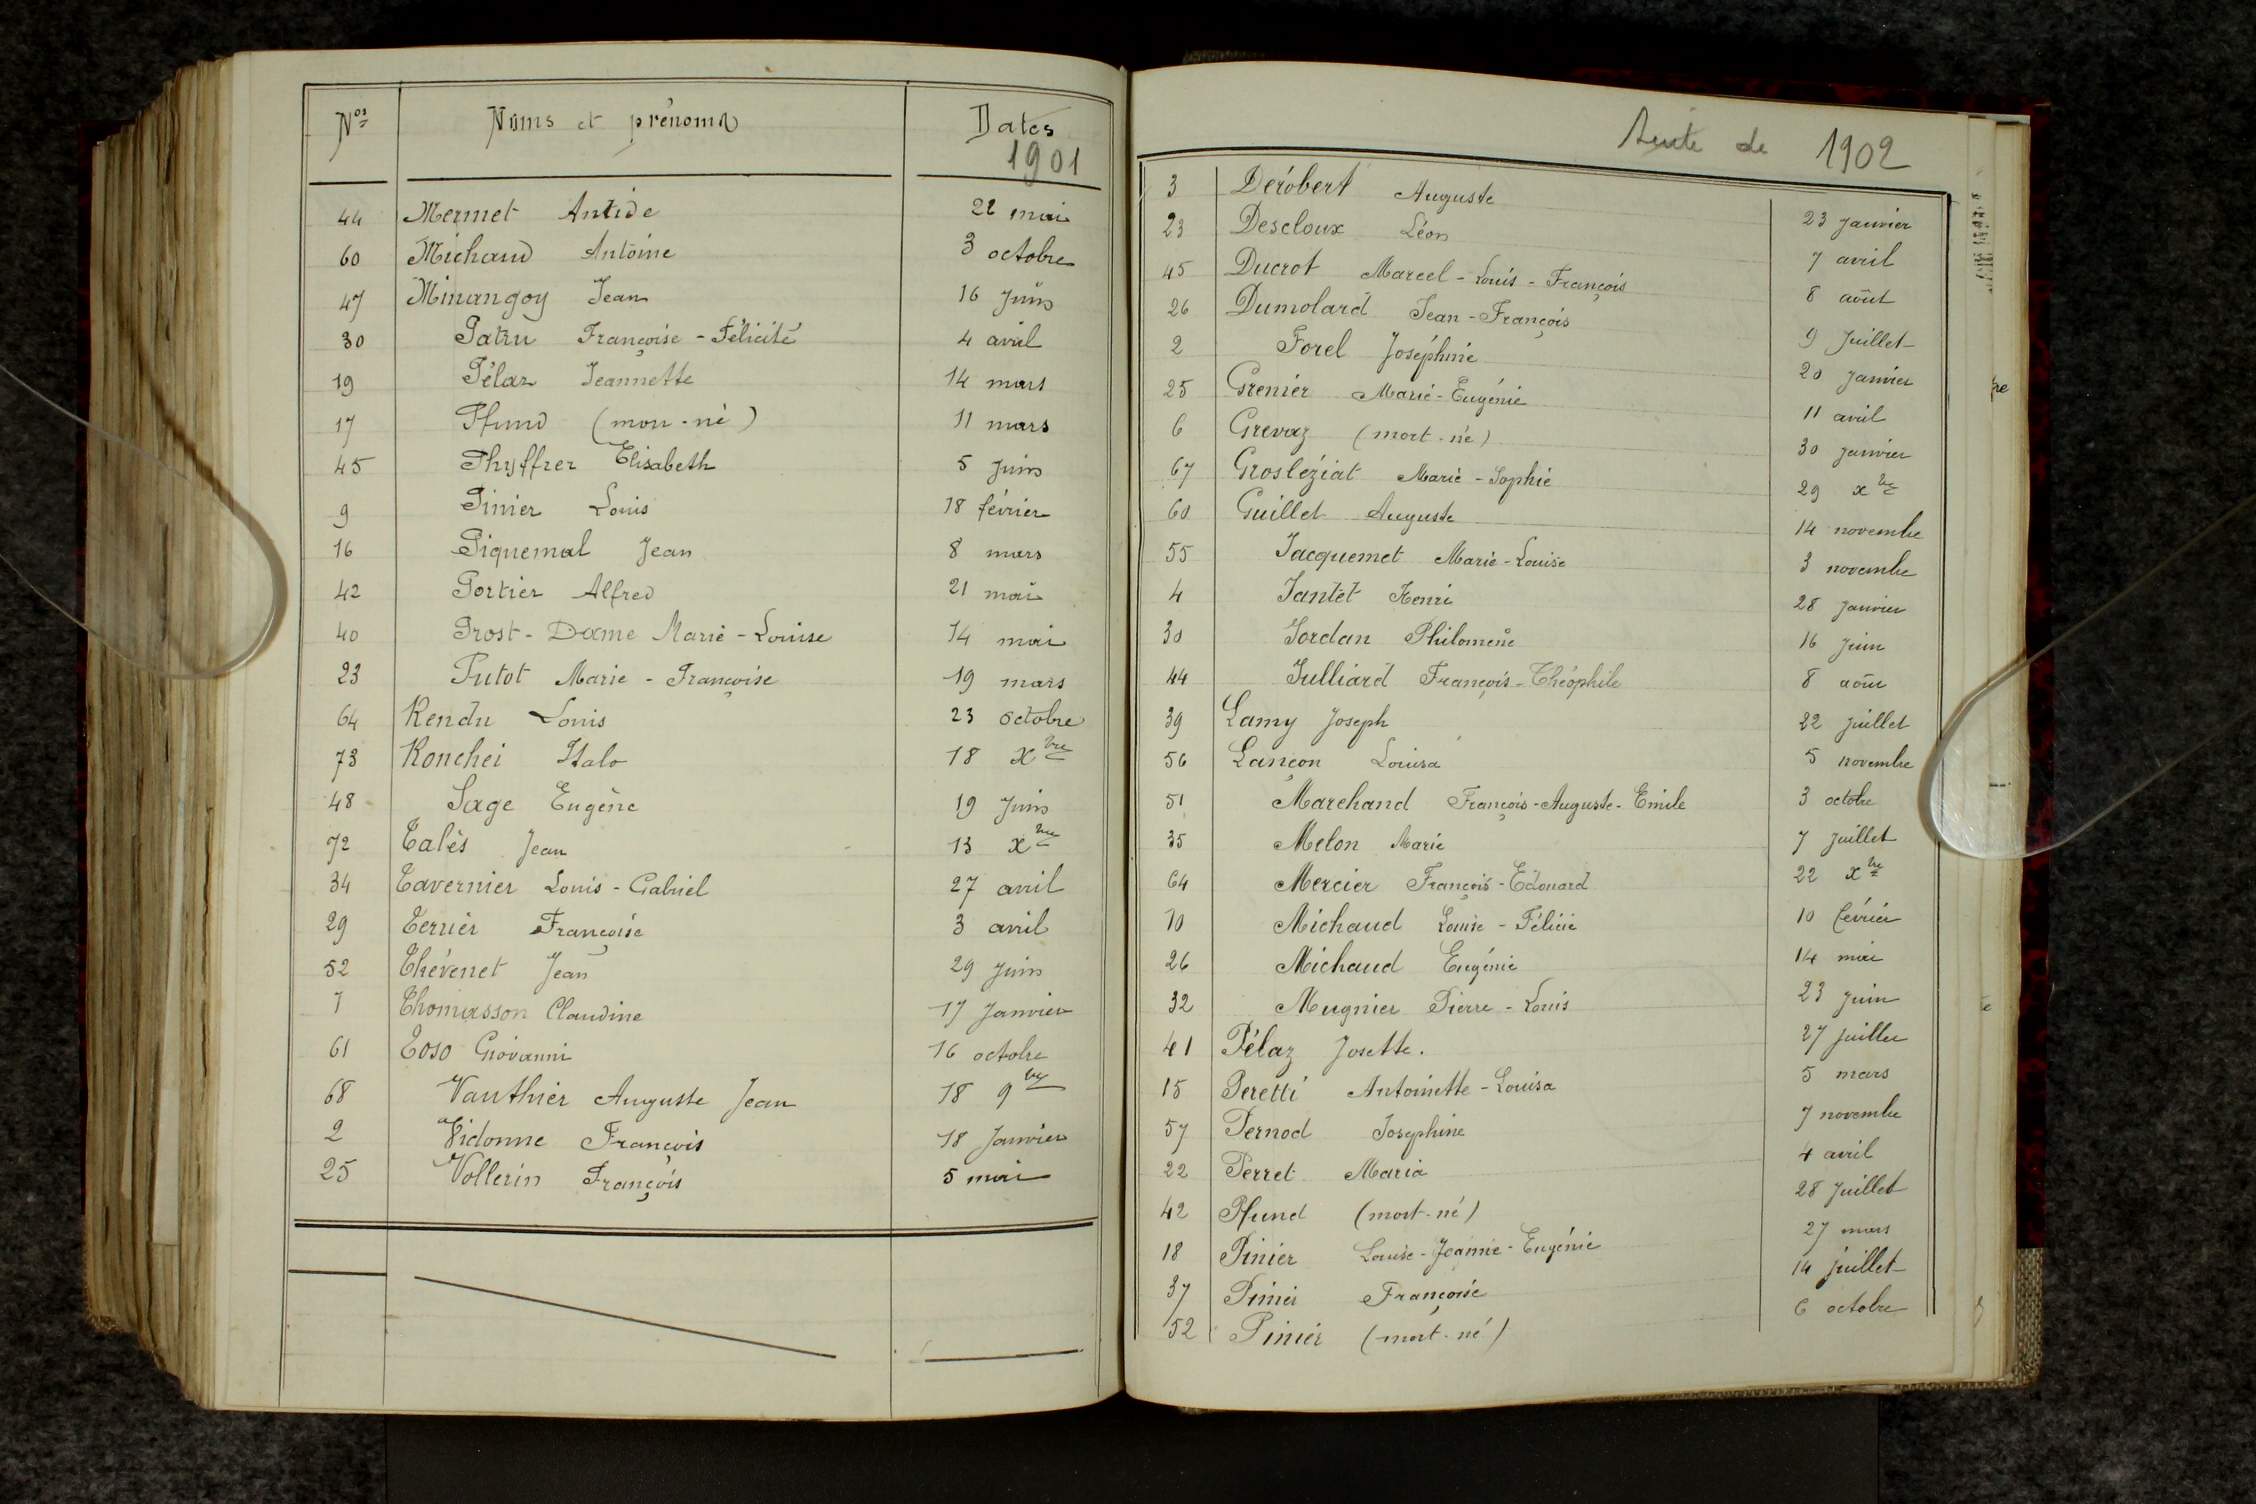 Nos Noms et prénoms Dates
1901
44 Mermet Antide 22 mai
60 Michaud Antoine 3 octobre
47 Minangoy Jean 16 juin
30 Patru Françoise - Félicité 4 avril
19 Pélaz Jeannette 14 mars
17 Pfund (mort-né) 11 mars
45 Phyffrer Elisabeth 5 juin
9 Pinier Louis 18 février
16 Piquemal Jean 8 mars
42 Portier Alfred 21 mai
40 Prost-Dame Marie-Louise 14 mai
23 Putot Marie - Françoise 19 mars
64 Rendu Louis 23 octobre
73 Ronchei Italo 18 xbre
48 Sage Eugène 19 juin
72 Talès Jean 13 xbre
34 Tavernier Louis-Gabriel 27 avril
29 Terrier Françoise 3 avril
52 Thévenet Jean 29 juin
1 Thomasson Claudine 17 Janvier
61 Toso Giovanni 16 octobre
68 Vauthier Auguste Jean 18 9bre
2 Vidonne François 18 Janvier
25 Vollerin François 5 mai
Suite de 1902
3 Dérobert Auguste 23 janvier
23 Descloux Léon 7 avril
45 Ducrot Marcel-Louis-François 8 août
26 Dumolard Jean-François 9 Juillet
2 Forel Joséphine 20 janvier
25 Grenier Marie-Eugénie 11 avril
6 Grevaz (mort-né) 30 janvier
67 Grosléziat Marie-Sophie 29 xbre
60 Guillet Auguste 14 novembre
55 Jacquemet Marie-Louise 3 novembre
4 Jantet Henri 28 janvier
30 Jordan Philomène 16 juin
44 Julliard François-Théophile 8 août
39 Lamy Joseph 22 juillet
56 Lançon Louisa 5 novembre
51 Marchand François-Auguste-Emile 3 octobre
35 Melon Marie 7 juillet
64 Mercier François-Edouard 22 xbre
10 Michaud Louise-Félicie 10 février
26 Michaud Eugénie 14 mai
32 Mugnier Pierre-Louis 23 juin
41 Pélaz Josette. 27 juillet
15 Peretti Antoinette-Louisa 5 mars
57 Pernod Josephine 7 novembre
22 Perret Maria 4 avril
42 Pfund (mort-né) 28 juillet
18 Pinier Louise-Jeannie-Eugénie 27 mars
37 Pinier Françoise 14 juillet
52 Pinier (mort-né) 6 octobre